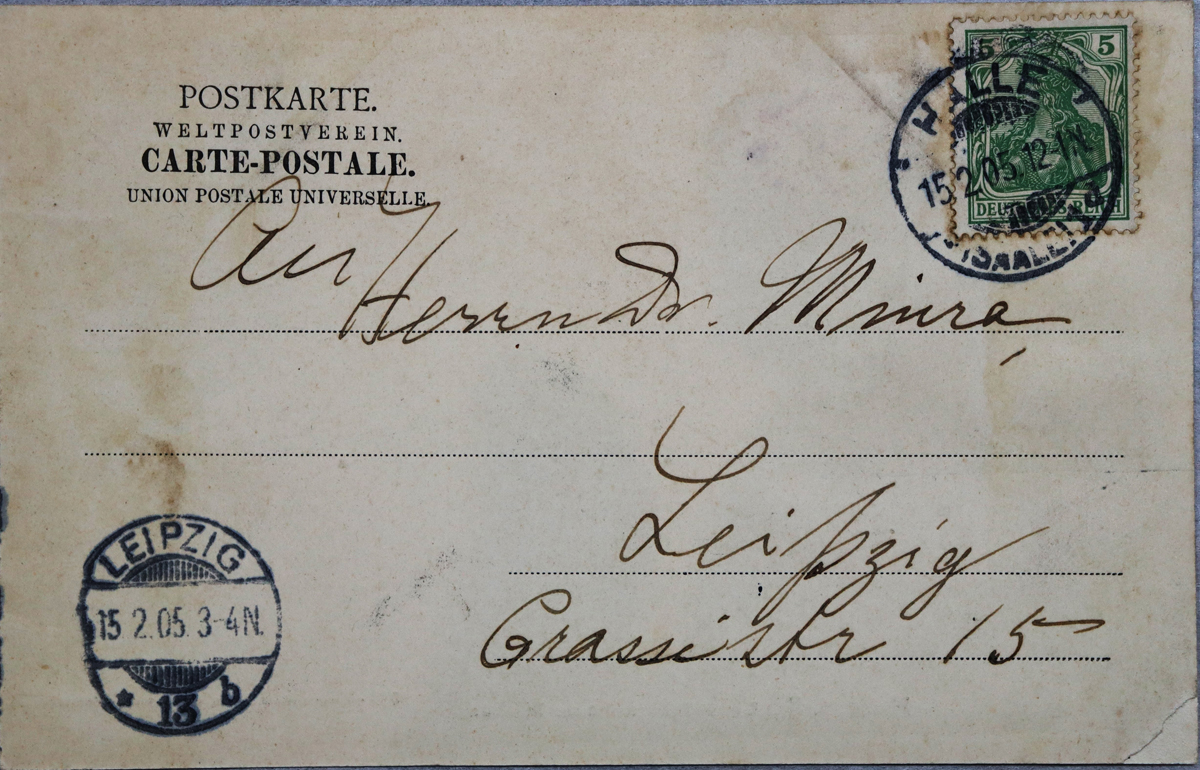 POSTKARTE.
WELTPOSTVEREIN.
CARTE-POSTALE.
UNION POSTALE UNIVERSELLE.
5 5
DEUTSCHES REICH
HALLE
15.2.05.12-1N.
(SAALE)
An
Herrn Dr. Miura
Leipzig
Grassistr 15
LEIPZIG
15.2.05.3-4N.
* 13 b